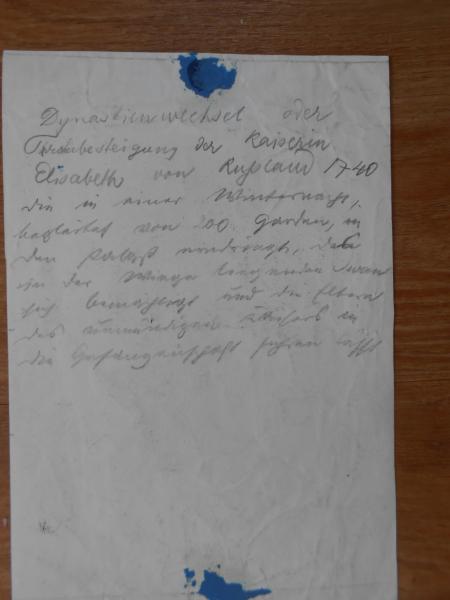 Dynastienwechsel oder
Thronbesteigung der Kaiserin
Elisabeth von Rußland 1740
die in einer Winternacht,
begleitet von 200 Garden, in
den Palast eindringt, des
in der Wiege liegenden Iwan
sich bemächtigt und die Eltern
des unmündigen Kaisers in
die Gefangenschaft führen läßt